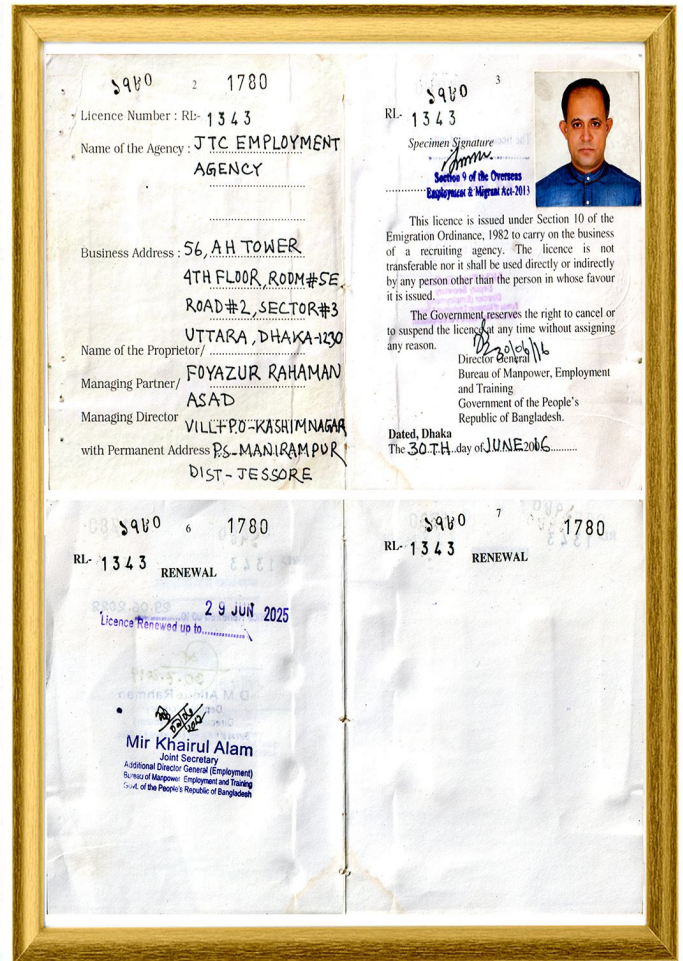 ১৭৮০ 2 1780
Licence Number : RL- 1343
Name of the Agency : JTC EMPLOYMENT
AGENCY
Business Address : 56, AH TOWER
4TH FLOOR, ROOM#5E
ROAD#2, SECTOR#3
UTTARA, DHAKA-1230
Name of the Proprietor/
Managing Partner/ FOYAZUR RAHAMAN
ASAD
Managing Director VILL+P.O-KASHIMNAGAR
with Permanent Address P.S-MANIRAMPUR
DIST-JESSORE
3
১৭৮০
RL- 1343
Specimen Signature
Section 9 of the Overseas
Employment & Migrant Act-2013
This licence is issued under Section 10 of the
Emigration Ordinance, 1982 to carry on the business
of a recruiting agency. The licence is not
transferable nor it shall be used directly or indirectly
by any person other than the person in whose favour
it is issued.
The Government reserves the right to cancel or
to suspend the licence at any time without assigning
any reason.
30/06/16
Director General
Bureau of Manpower, Employment
and Training
Government of the People's
Republic of Bangladesh.
Dated, Dhaka
The 30TH day of JUNE 2006
১৭৮০ 6 1780
RL- 1343
RENEWAL
29 JUN 2025
Licence Renewed up to
Mir Khairul Alam
Joint Secretary
Additional Director General (Employment)
Bureau of Manpower Employment and Training
Govt. of the People's Republic of Bangladesh
১৭৮০ 7 1780
RL- 1343
RENEWAL